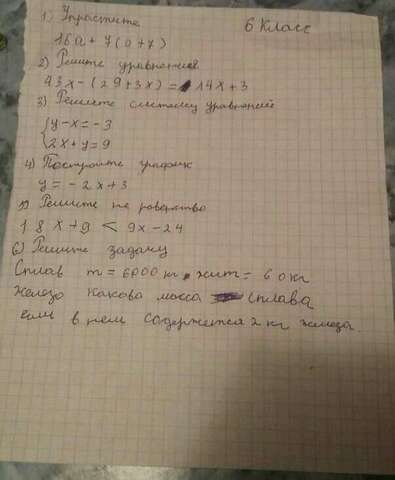 6 Класс
1) Упростите
16a + 7(a+7)
2) Решите уравнение
43x - (29+3x) = 14x+3
3) Решите систему уравнений
{y-x=-3
2x+y=9
4) Постройте график
y = -2x+3
5) Решите не равенство
18x+9 < 9x-24
6) Решите задачу
Сплав m = 6000 кг m = 60 кг
железо какова масса сплава
если в нем содержится 2 кг железа